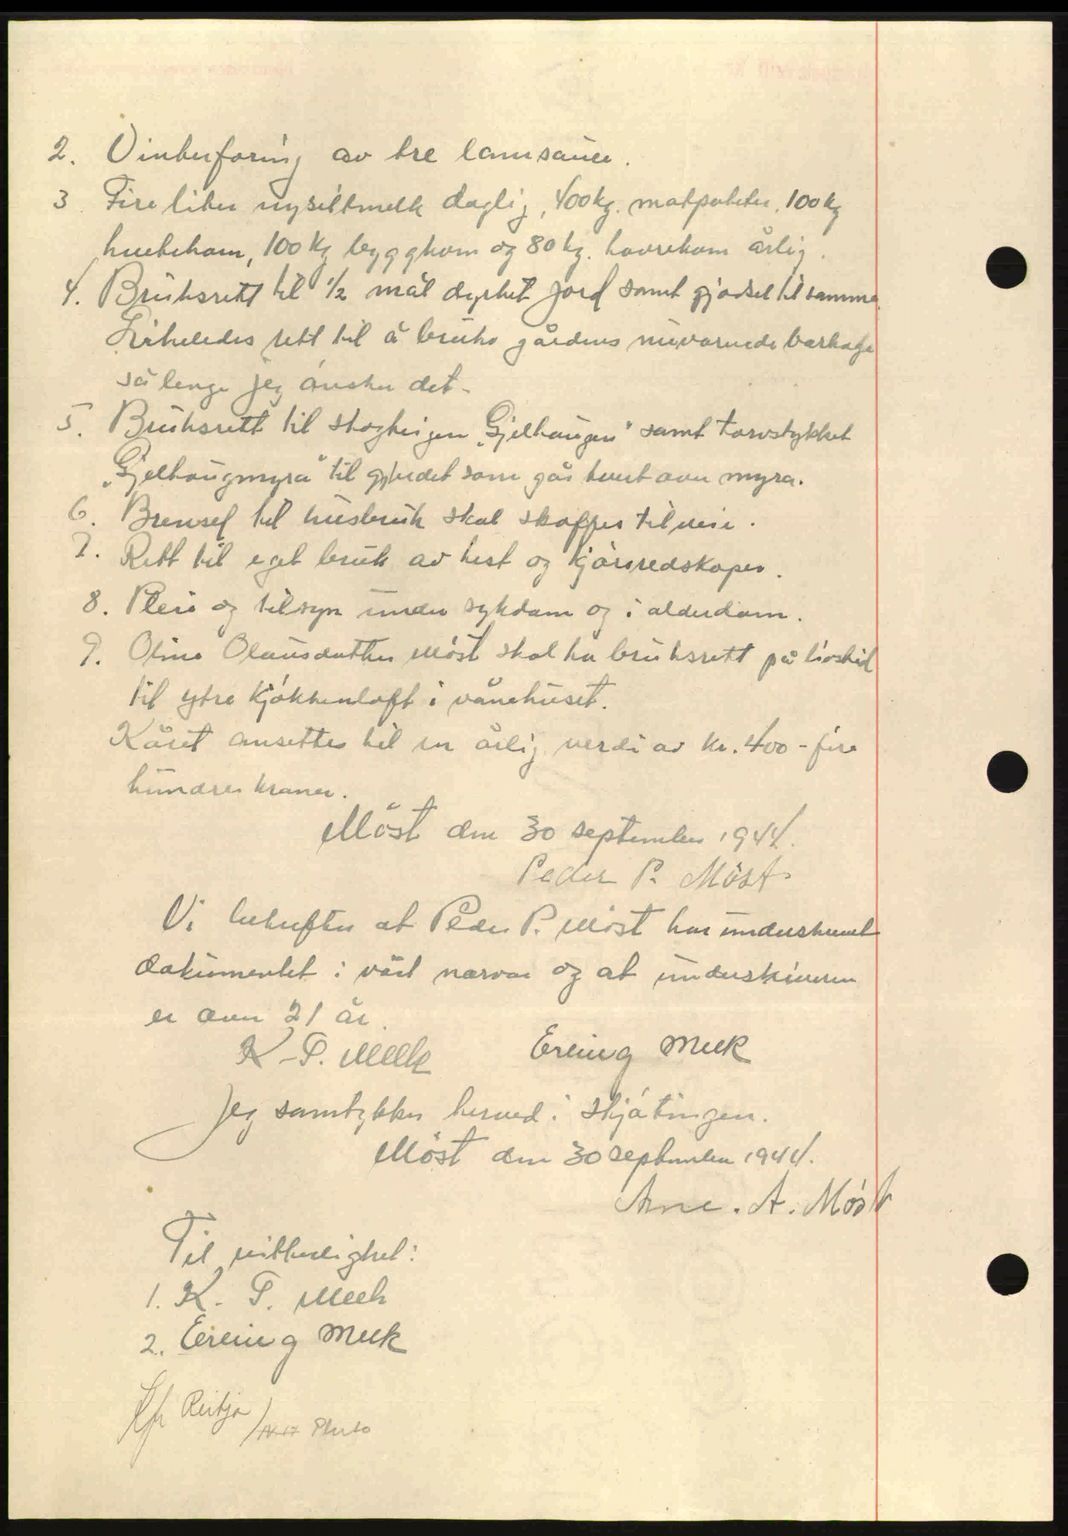 2. Vinterforing av tre lamsauer.
3 Fire liter nysiltmelk daglig, 400 kg. matpoteter, 100 kg
hvetekorn, 100 kg byggkorn og 80 kg. havrekorn årlig.
4. Bruksrett til 1/2 mål dyrket jord samt gjødsel til samme.
Likeledes rett til å bruke gårdens nuværende bærhage
så lenge jeg ønsker det.
5. Bruksrett til skogteigen "Gjelhaugen" samt torvstykket
"Gjelhaugmyra" til gjerdet som går tvert over myra.
6. Brensel til husbruk skal skaffes tilveie.
7. Rett til eget bruk av hest og kjøreredskaper.
8. Pleie og tilsyn under sykdom og i alderdom.
9. Oline Olausdatter Møst skal ha bruksrett på livstid
til ytre kjøkkenloft i vånehuset.
Kåret ansettes til en årlig verdi av kr. 400 - fire
hundre kroner.
Møst den 30 september 1944.
Peder P. Møst
Vi bekrefter at Peder P. Møst har underskrevet
dokumentet i vårt nærvær og at underskriveren
er over 21 år.
K. P. Meek Erling Meek
Jeg samtykker herved i skjøtingen.
Møst den 30 september 1944.
Arne. A. Møst
Til vitterlighet:
1. K. P. Meek
2. Erling Meek